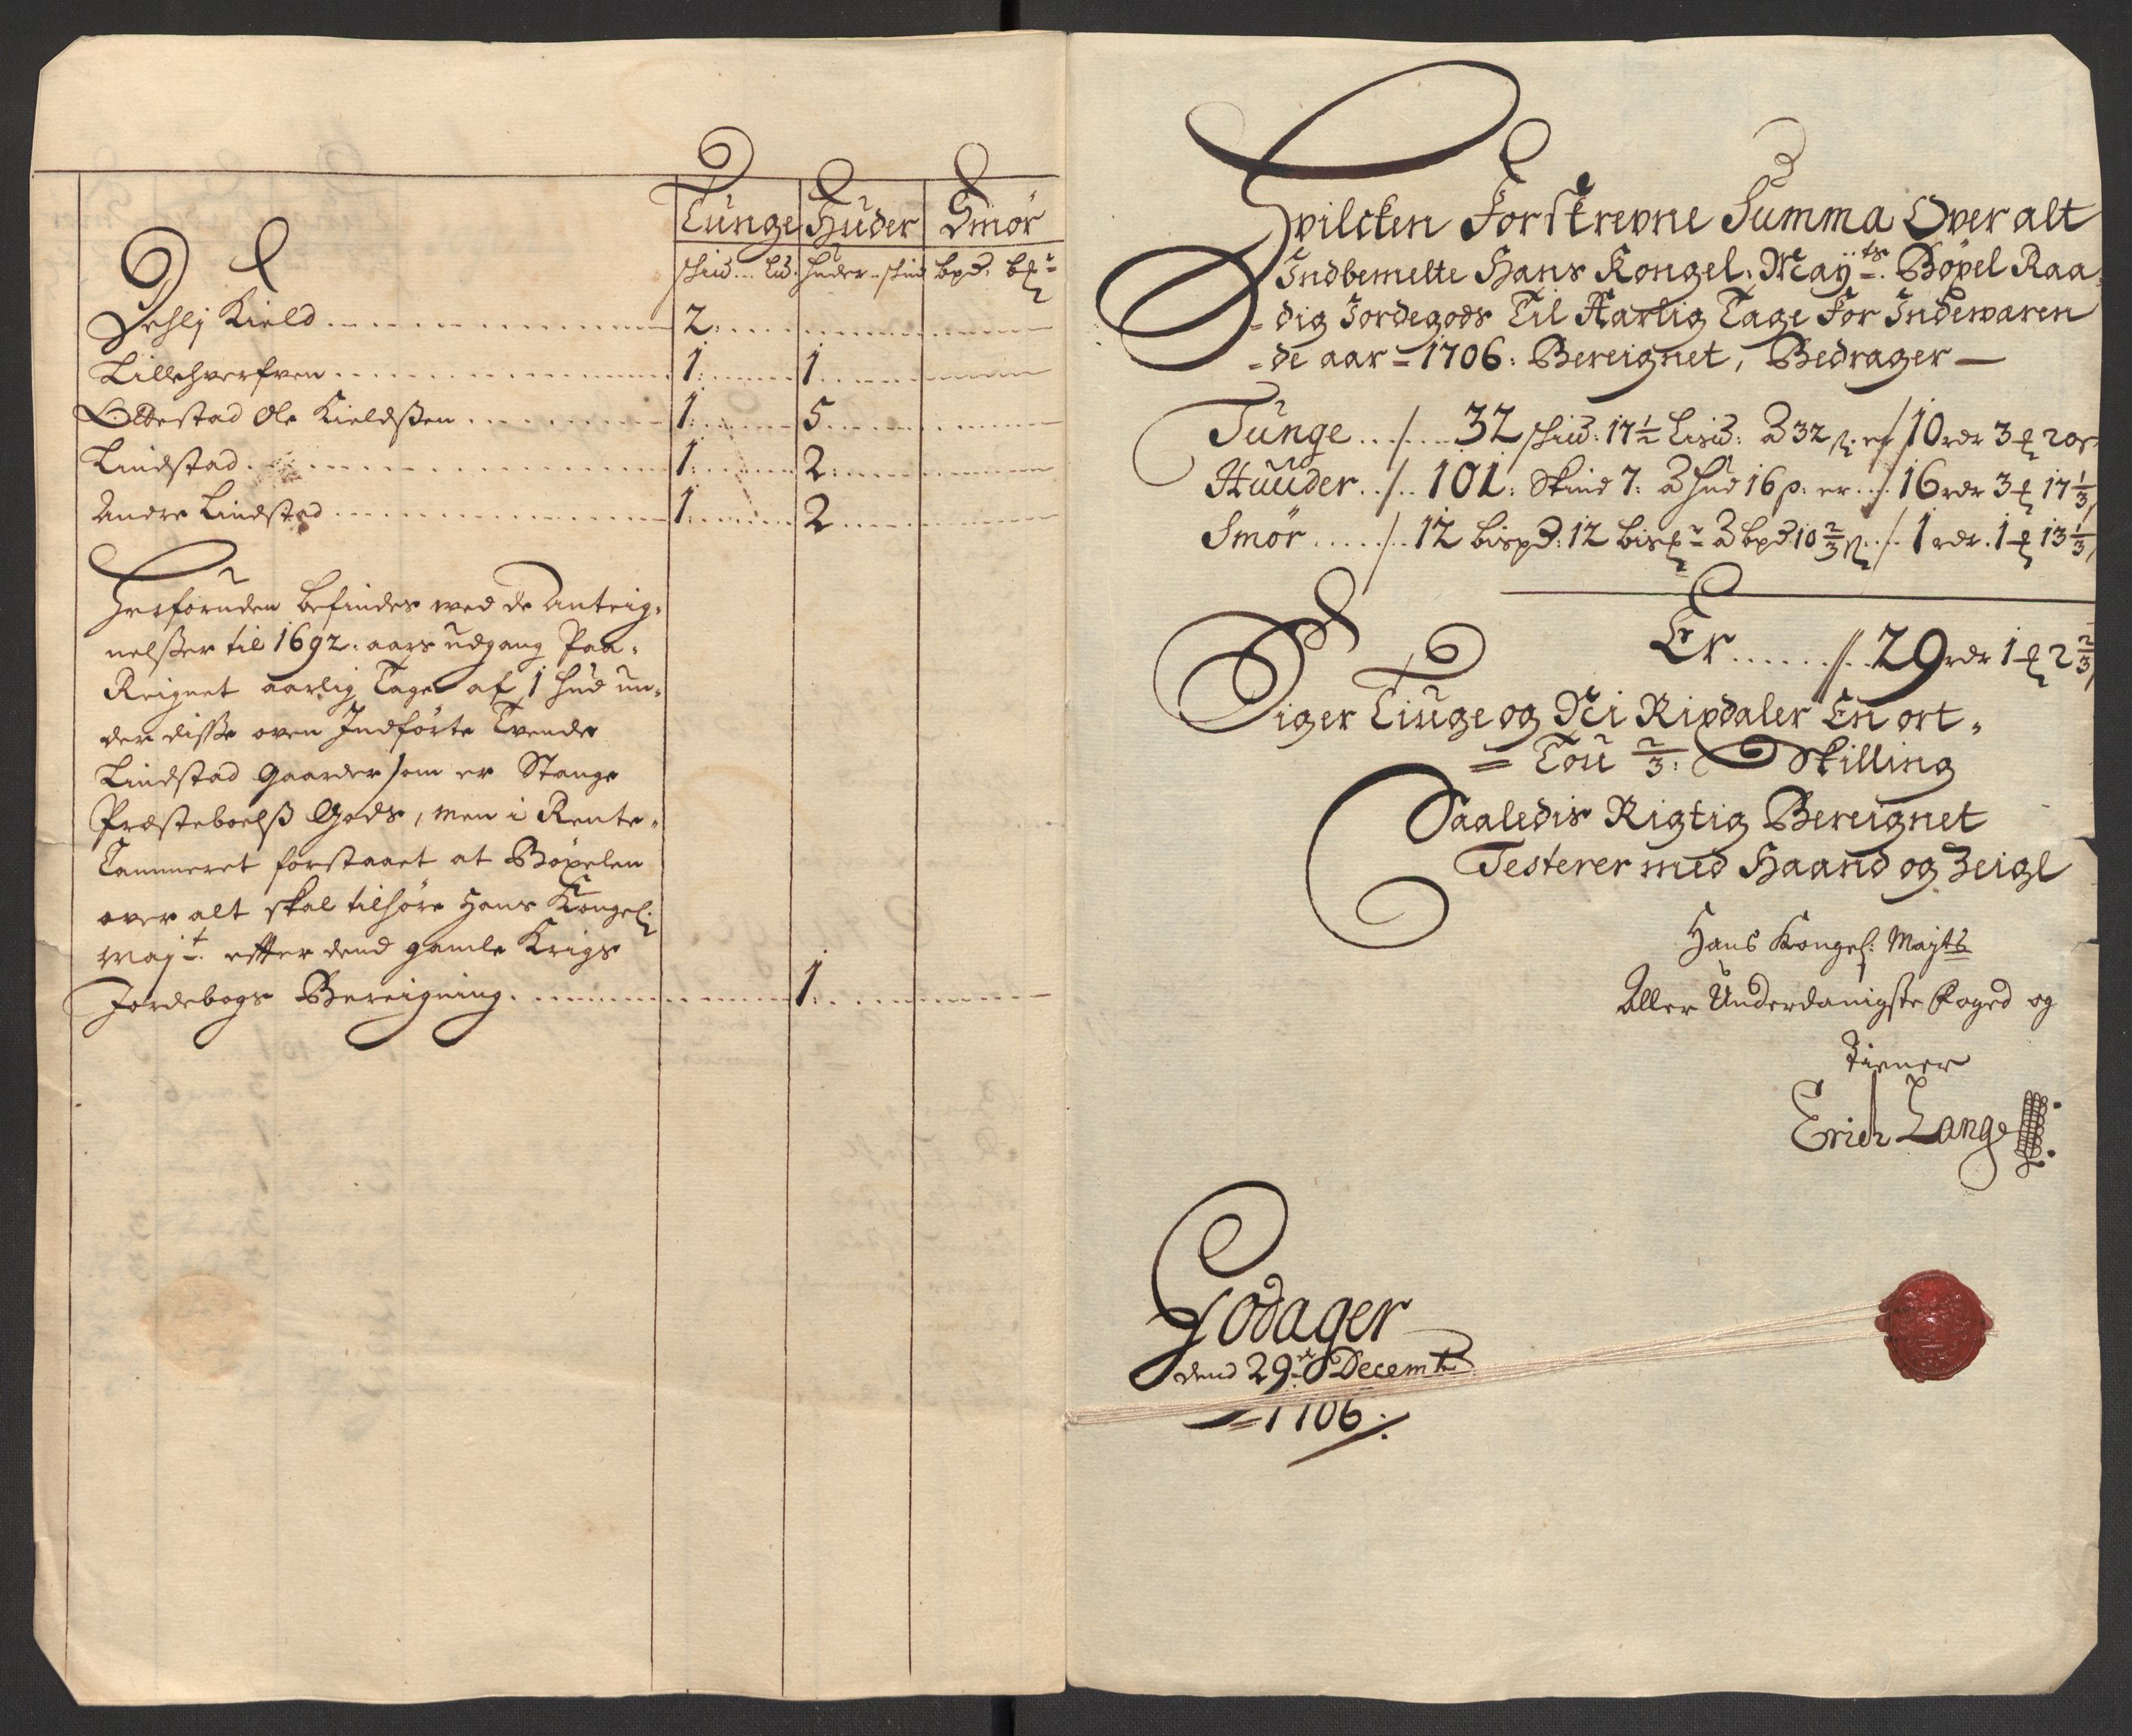 Tunge Huder Smör
skiw... Lw: huder - skind bpd: bℓr
Kield 2:
Lillehverfven 1: 1
Ottestad Ole Kieldssen 1: 5
Lindstad 1: 2
Andre Lindstad 1: 2
Herforuden befindes wed de Anteig-
nelsser til 1692: aars udgang Paa-
Reignet aarlig Tage af 1 hud un-
der disse oven Indförte Tvende
Lindstad Gaarder som er Stange
Præsteboelss Gods, men i Rente-
Cammeret forstaaet at Böxelen
over alt skal tilhöre Hans Kongel:
Mayt: efter dend gamle Krigs
Jordebogs Bereigning 1:
Hvilcken Forskrevne Summa Over alt
Indbemelte Hans Kongel: Mayts: Böxel Raa-
- dig Jordegods Til Aarlig Tage For Indewaren
- de aar = 1706: Bereignet, Bedrager —
Tunge ../.. 32 skiw: 17½ Lisw: a 32 s: er / 10 rdr 3 ℓ 20 s
Huuder ../.. 101: Skind 7: a hud 16 s: er ../ 16 rdr 3 ℓ 17⅓
Smör ...../.. 12 bispd: 12 bisℓr a bpd 10⅔ s ../.. 1 rdr. 1 ℓ 13⅓
Er ...... //.. 29 rdr 1 ℓ 2⅔
Siger Tiuge og Ni Rixdaler En ort-
= Tou ⅔: Skilling
Saaledis Rigtig Bereignet
Testerer med Haand og Zeigl
Hans Kongel: Mayts
Aller Underdanigste Foged og
Tiener
Erich Lange
Godager
dend 29de Decemb
= 1706: